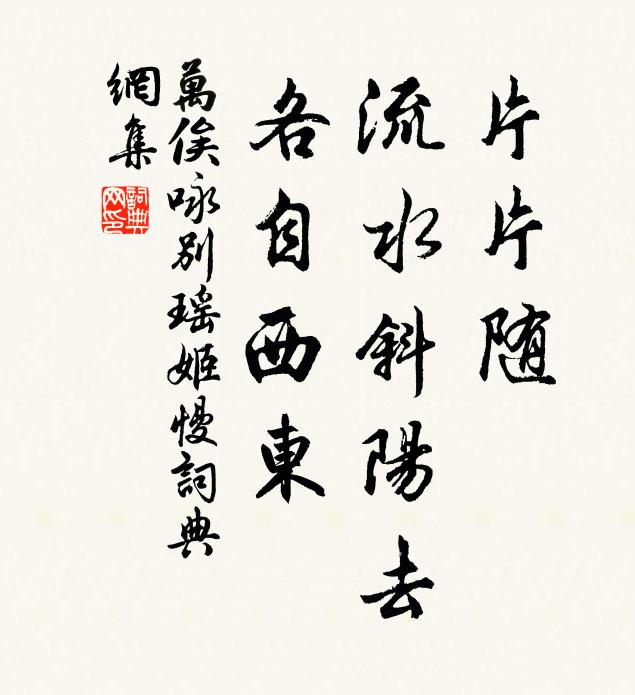 片片随
流水斜陽去
各自西東
萬俟咏別瑶姬慢詞典
網集
詞典
网印